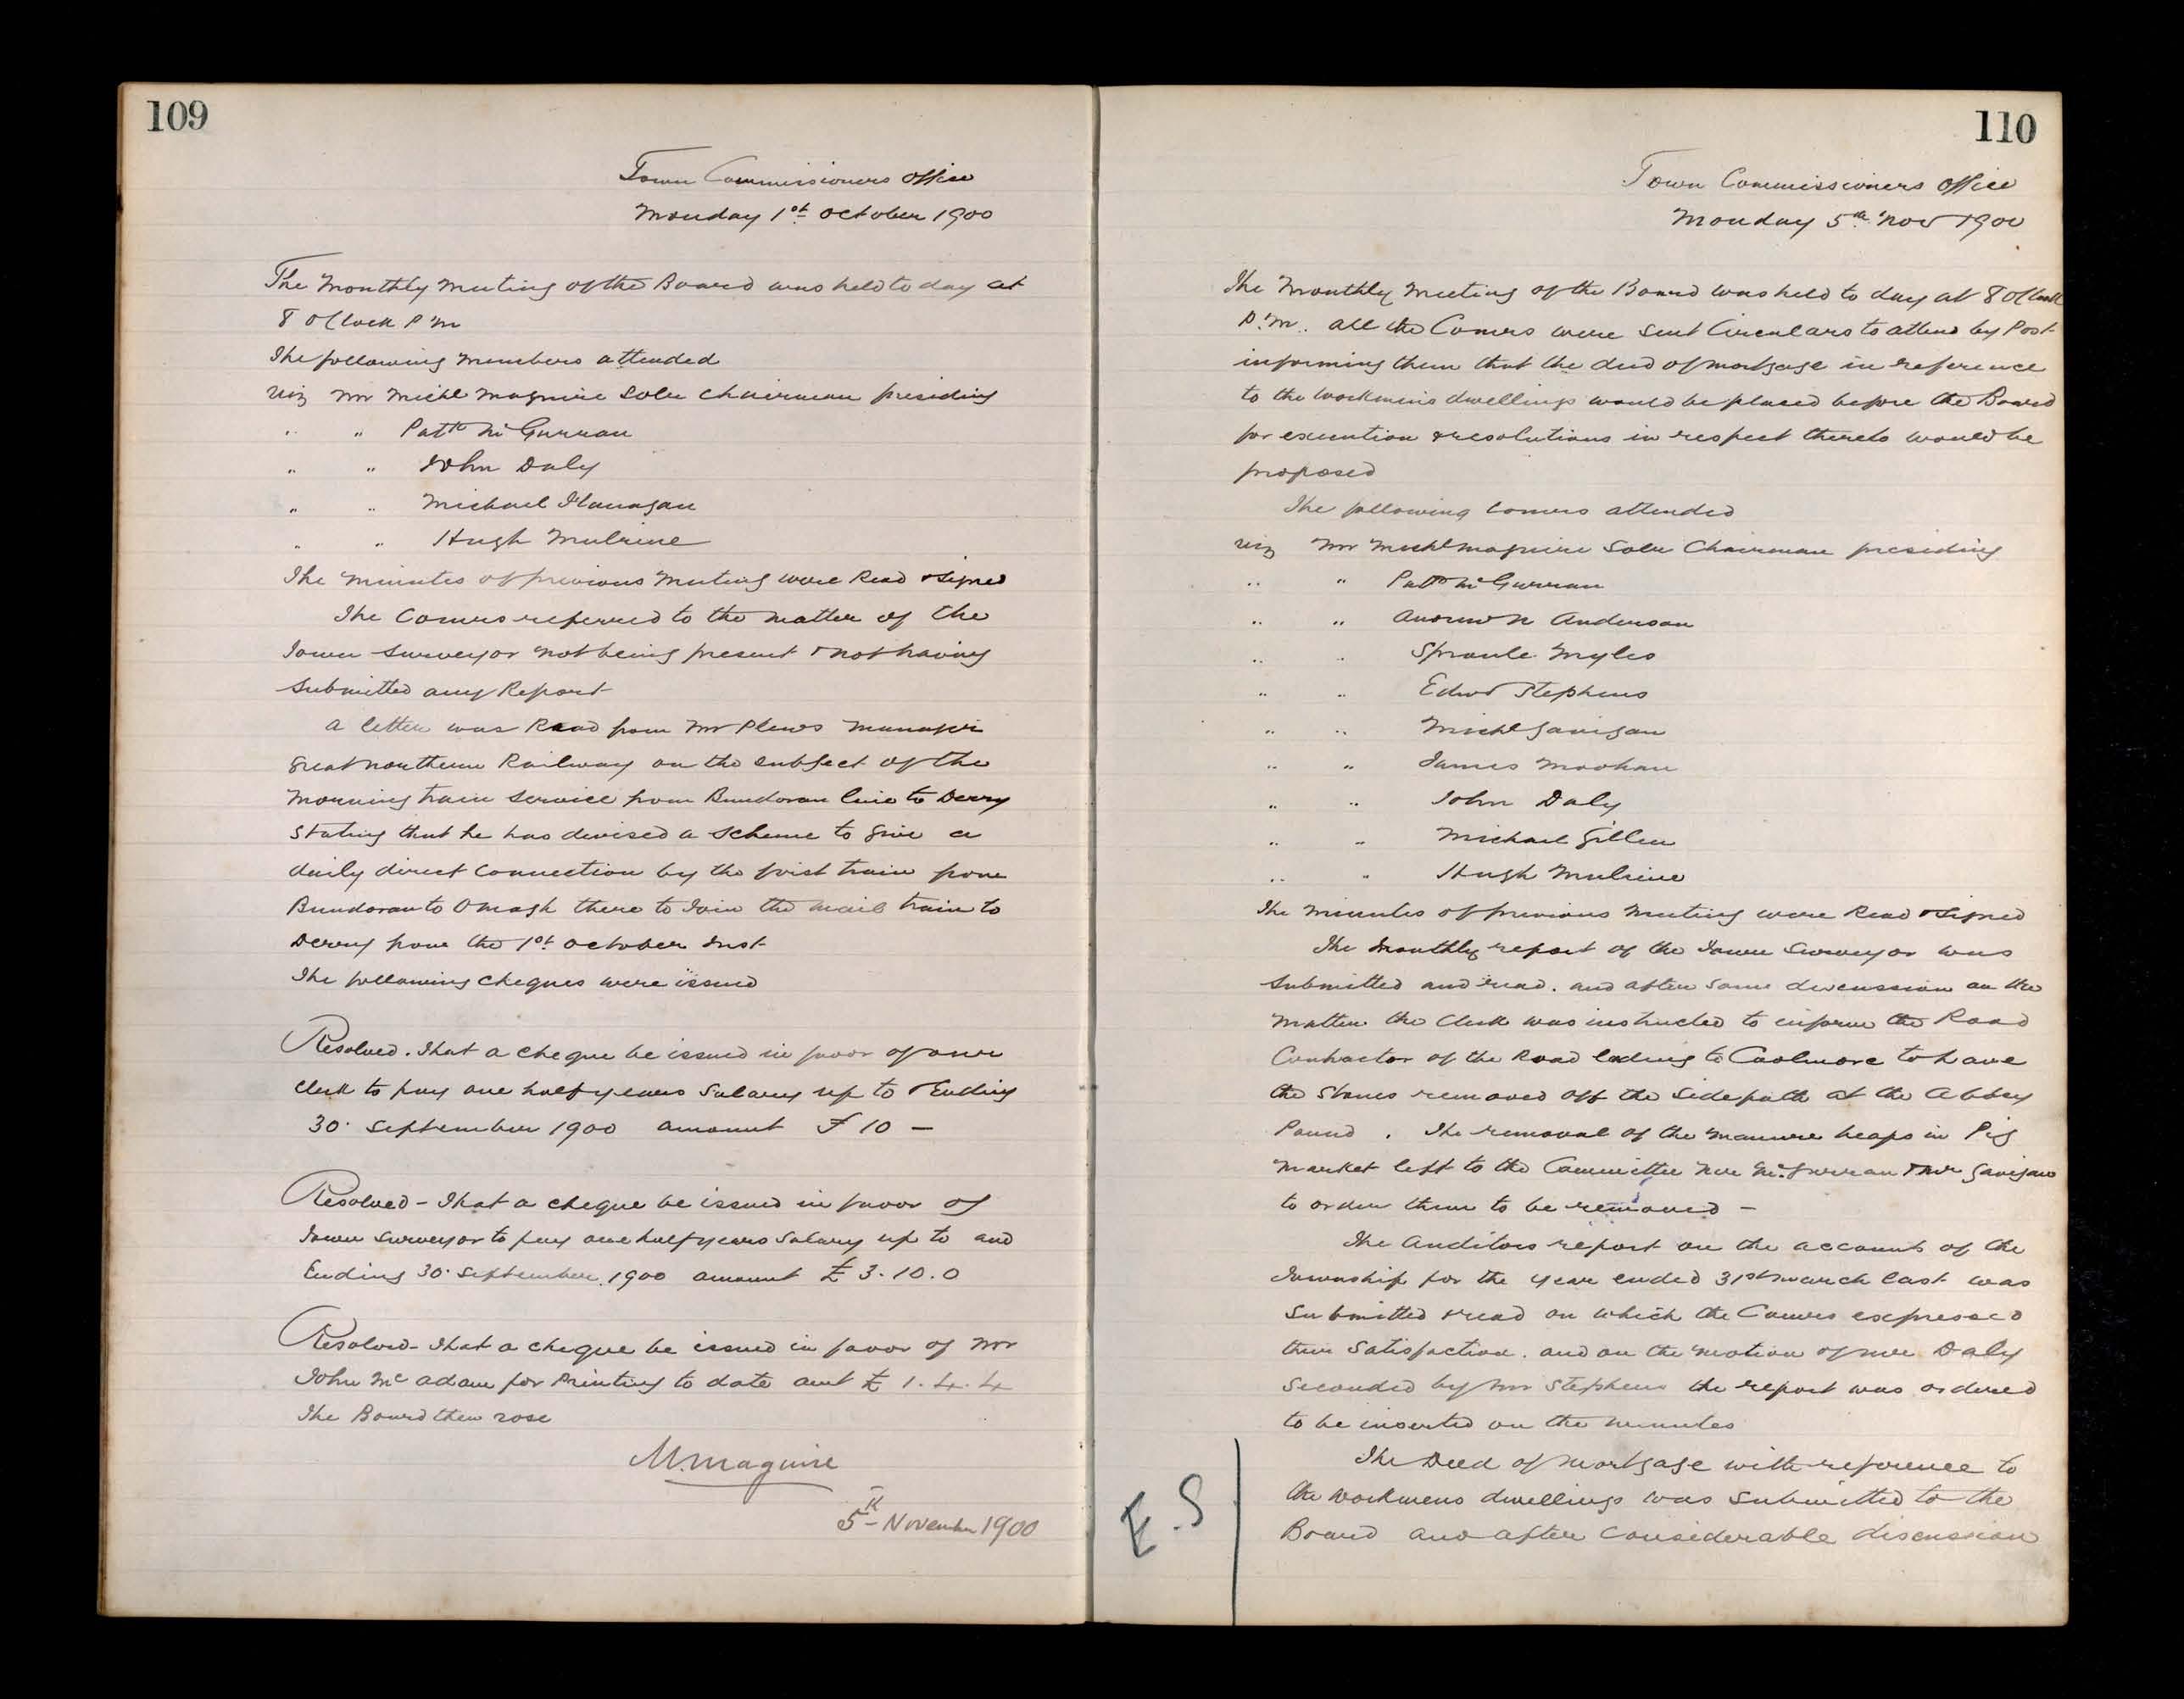 109
Town Commissioners Office
Monday 1st October 1900
The Monthly Meeting of the Board was held to day at
8 OClock P M
The following Members attended
viz Mr Michl Maguire Solr Chairman presiding
" " Patk McGurran
" " John Daly
" " Michael Flanagan
" " Hugh Mulrine
The Minutes of previous Meeting were Read & signed
The Comrs referred to the matter of the
Town Surveyor not being present & not having
submitted any Report
A letter was Read from Mr Plews Manager
Great Northern Railway on the subject of the
Morning train service from Bundoran line to Derry
Stating that he has devised a scheme to give a
daily direct connection by the first train from
Bundoran to Omagh there to Join the mail train to
Derry from the 1st October Inst
The following cheques were issued
Resolved. That a cheque be issued in favor of our
Clerk to pay one half years Salary up to & Ending
30 September 1900 amount £ 10 -
Resolved - That a cheque be issued in favor of
Town Surveyor to pay one half years Salary up to and
Ending 30 September 1900 amount £ 3.10.0
Resolved - That a cheque be issued in favor of Mr
John Mc Adam for Printing to date amt £ 1.4.4
The Board then rose
M. Maguire
5th November 1900
110
Town Commissioners Office
Monday 5th Nov 1900
The Monthly Meeting of the Board was held to day at 8 OClock
P.M. All the Comrs were sent Circulars to attend by Post
informing them that the deed of mortgage in reference
to the workmens dwellings would be placed before the Board
for execution & resolutions in respect thereto would be
proposed
The following Comrs attended
viz Mr Michl Maguire Solr Chairman presiding
" " Patk McGurran
" " Andrew N Anderson
" " Sproule Myles
" " Edwd Stephens
" " Michl Gavigan
" " James Moohan
" " John Daly
" " Michael Gillen
" " Hugh Mulrine
The Minutes of previous Meeting were Read & signed
The Monthly report of the Town Surveyor was
submitted and read. and after some discussion on the
matter the Clerk was instructed to inform the Road
Contractor of the Road leading to Coolmore to have
the Stones removed off the sidepath at the Abbey
Pound . The removal of the manure heaps in Pig
Market left to the Committee Mr McGurran & Mr Gavigan
to order them to be removed -
The Auditors report on the accounts of the
Township for the year ended 31st March last was
submitted & read on which the Comrs expressed
their satisfaction. and on the motion of Mr Daly
seconded by Mr Stephens the report was ordered
to be inserted on the minutes
The Deed of Mortgage with reference to
the workmens dwellings was submitted to the
Board and after considerable discussion
E.S